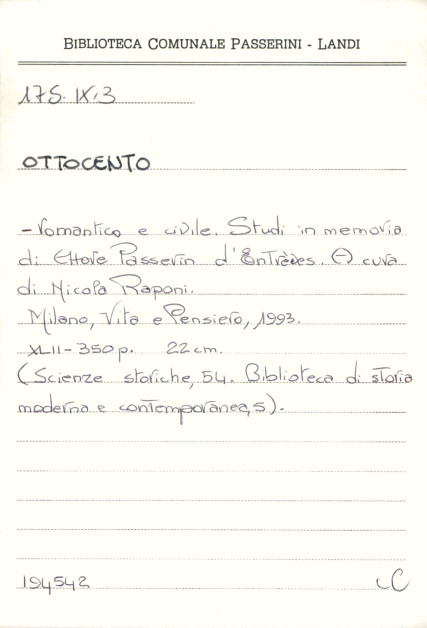 BIBLIOTECA COMUNALE PASSERINI - LANDI
175. IX.3
OTTOCENTO
- romantico e civile. Studi in memoria
di Ettore Passerin d'Entrèves. A cura
di Nicola Raponi.
Milano, Vita e Pensiero, 1993.
XLII-350 p. 22 cm.
(Scienze storiche, 54. Biblioteca di storia
moderna e contemporanea, 5).
194542